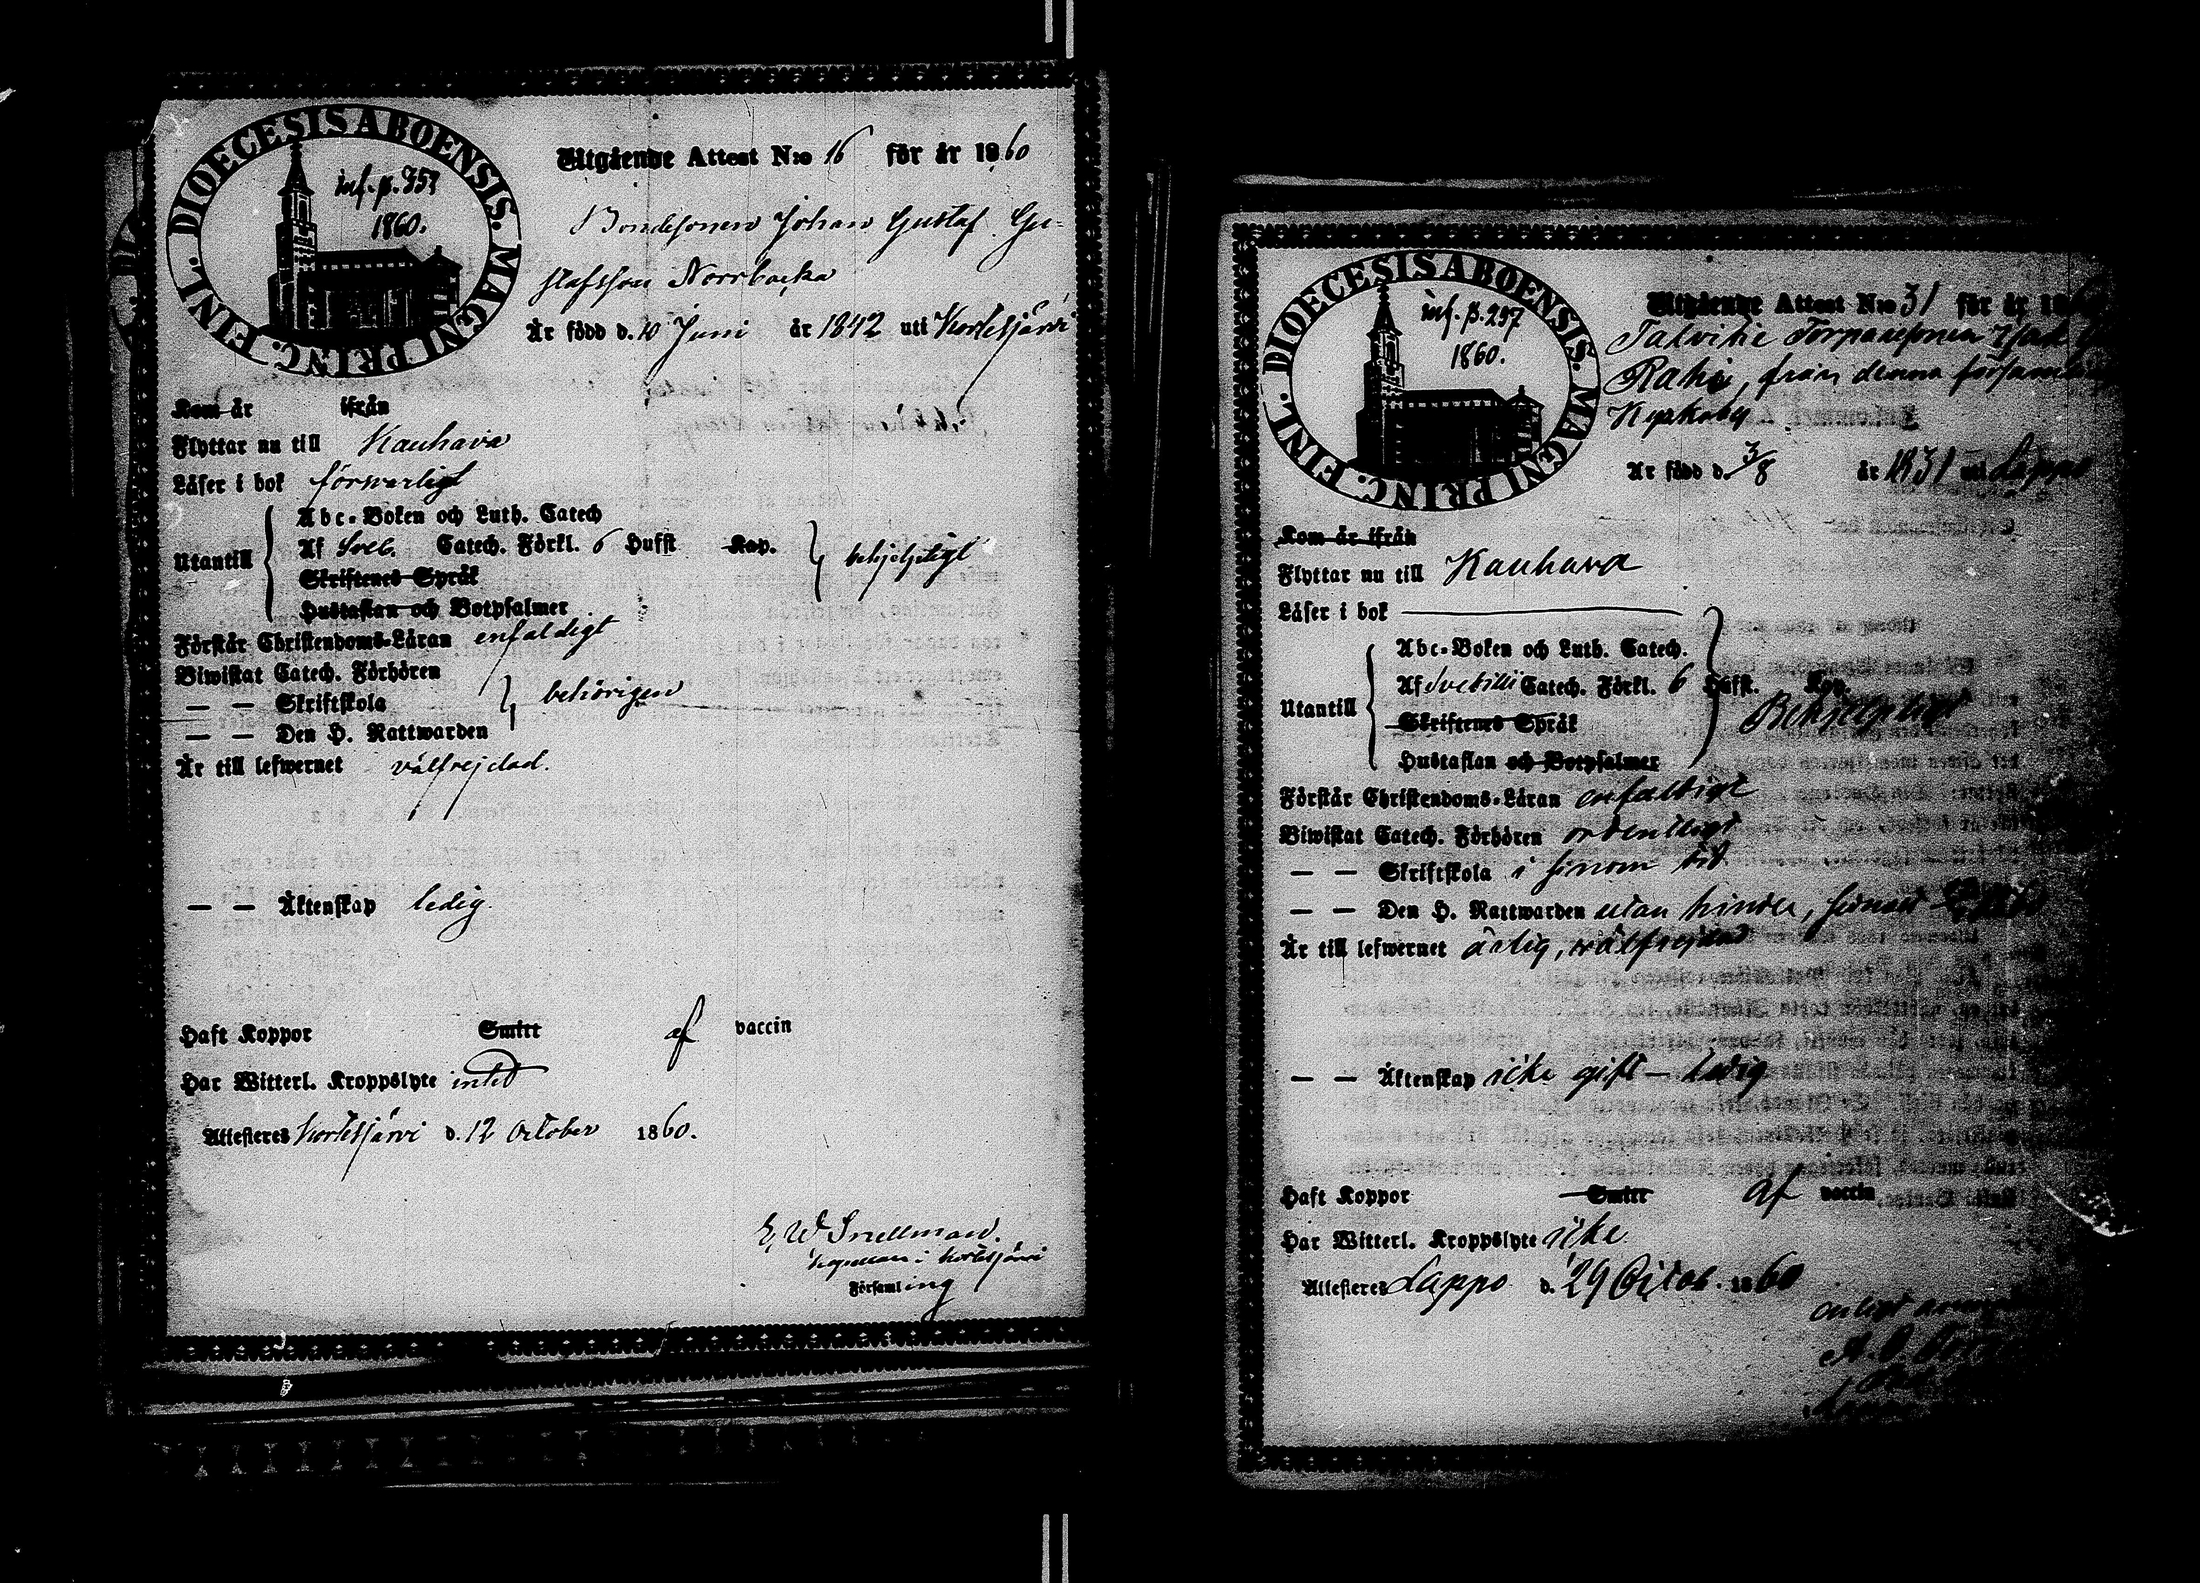 DIOECESIS ABOENSIS. MAGNI PRINC. FINL.
inf. p. 353
1860.
Utgående Attest N:o 16 för år 1860
Bondesonen Johan Gustaf Gu-
stafsson Norrbacka
Är född d. 10 Juni år 1842 uti Kortesjärvi
Kom år ifrån
Flyttar nu till Kauhava
Läser i bok försvarligt
Utantill
Abc-Boken och Luth. Catech
Af Sveb. Catech. Förkl. 6 Hufst Kap. behjelpligt
Skriftenes Språk
Hustaflan och Botpsalmer
Förstår Christendoms-Läran enfaldigt
Biwistat Catech. Förhören
— — Skriftskola behörigen
— — Den H. Nattwarden
Är till lefwernet välfrejdad.
— — Äktenskap ledig.
Haft Koppor Smitt af vaccin
Har Witterl. Kroppslyte intet
Attesteres Kortesjärvi d. 12 October 1860.
E W Snellman.
Kapellan i Kortesjärvi
Församling
DIOECESIS ABOENSIS. MAGNI PRINC. FINL.
inf. p. 297
1860.
Utgående Attest N:o 31 för år 186
Talvitie Torparesonen Isak
Rahi, från denna försam
Kyrkoby
Är född d. 3/8 år 1831 uti Lappo
Kom år ifrån
Flyttar nu till Kauhava
Läser i bok
Utantill
Abc-Boken och Luth. Catech.
Af Svebilii Catech. Förkl. 6 Hufst. Kap.
Behjelpligt
Skriftenes Språk
Hustaflan och Botpsalmer
Förstår Christendoms-Läran enfaldigt
Biwistat Catech. Förhören ordentligt
— — Skriftskola i sinom tid
— — Den H. Nattwarden utan hinder, senast
Är till lefwernet ärlig, välfrejdad
— — Äktenskap icke gift — ledig
Haft Koppor Smitt af vaccin
Har Witterl. Kroppslyte icke
Attesteres Lappo d. 29 Octob. 1860
enligt